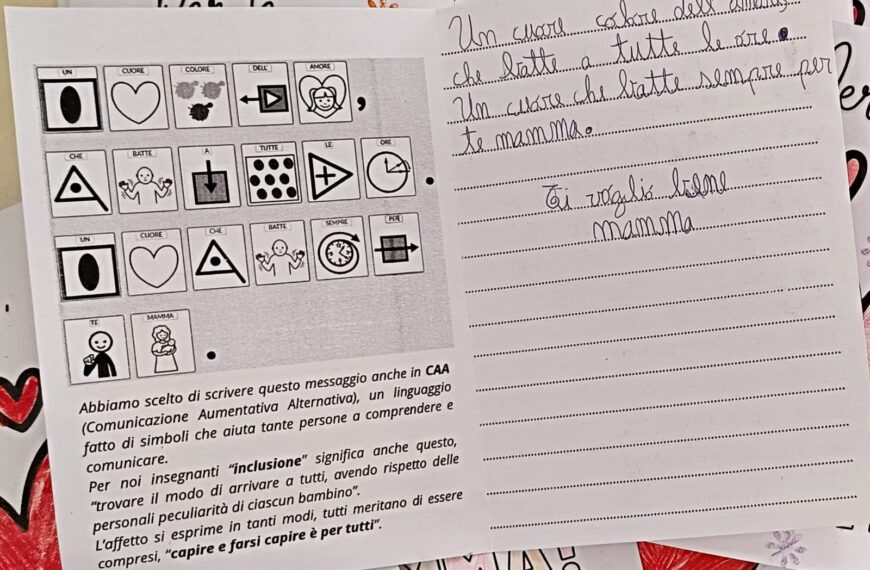 UN CUORE COLORE DELL' AMORE ,
CHE BATTE A TUTTE LE ORE .
UN CUORE CHE BATTE SEMPRE PER
TE MAMMA .
Abbiamo scelto di scrivere questo messaggio anche in CAA
(Comunicazione Aumentativa Alternativa), un linguaggio
fatto di simboli che aiuta tante persone a comprendere e
comunicare.
Per noi insegnanti “inclusione” significa anche questo,
“trovare il modo di arrivare a tutti, avendo rispetto delle
personali peculiarità di ciascun bambino”.
L’affetto si esprime in tanti modi, tutti meritano di essere
compresi, “capire e farsi capire è per tutti”.
Un cuore colore dell'amore,
che batte a tutte le ore.
Un cuore che batte sempre per
te mamma.
Ti voglio bene
mamma